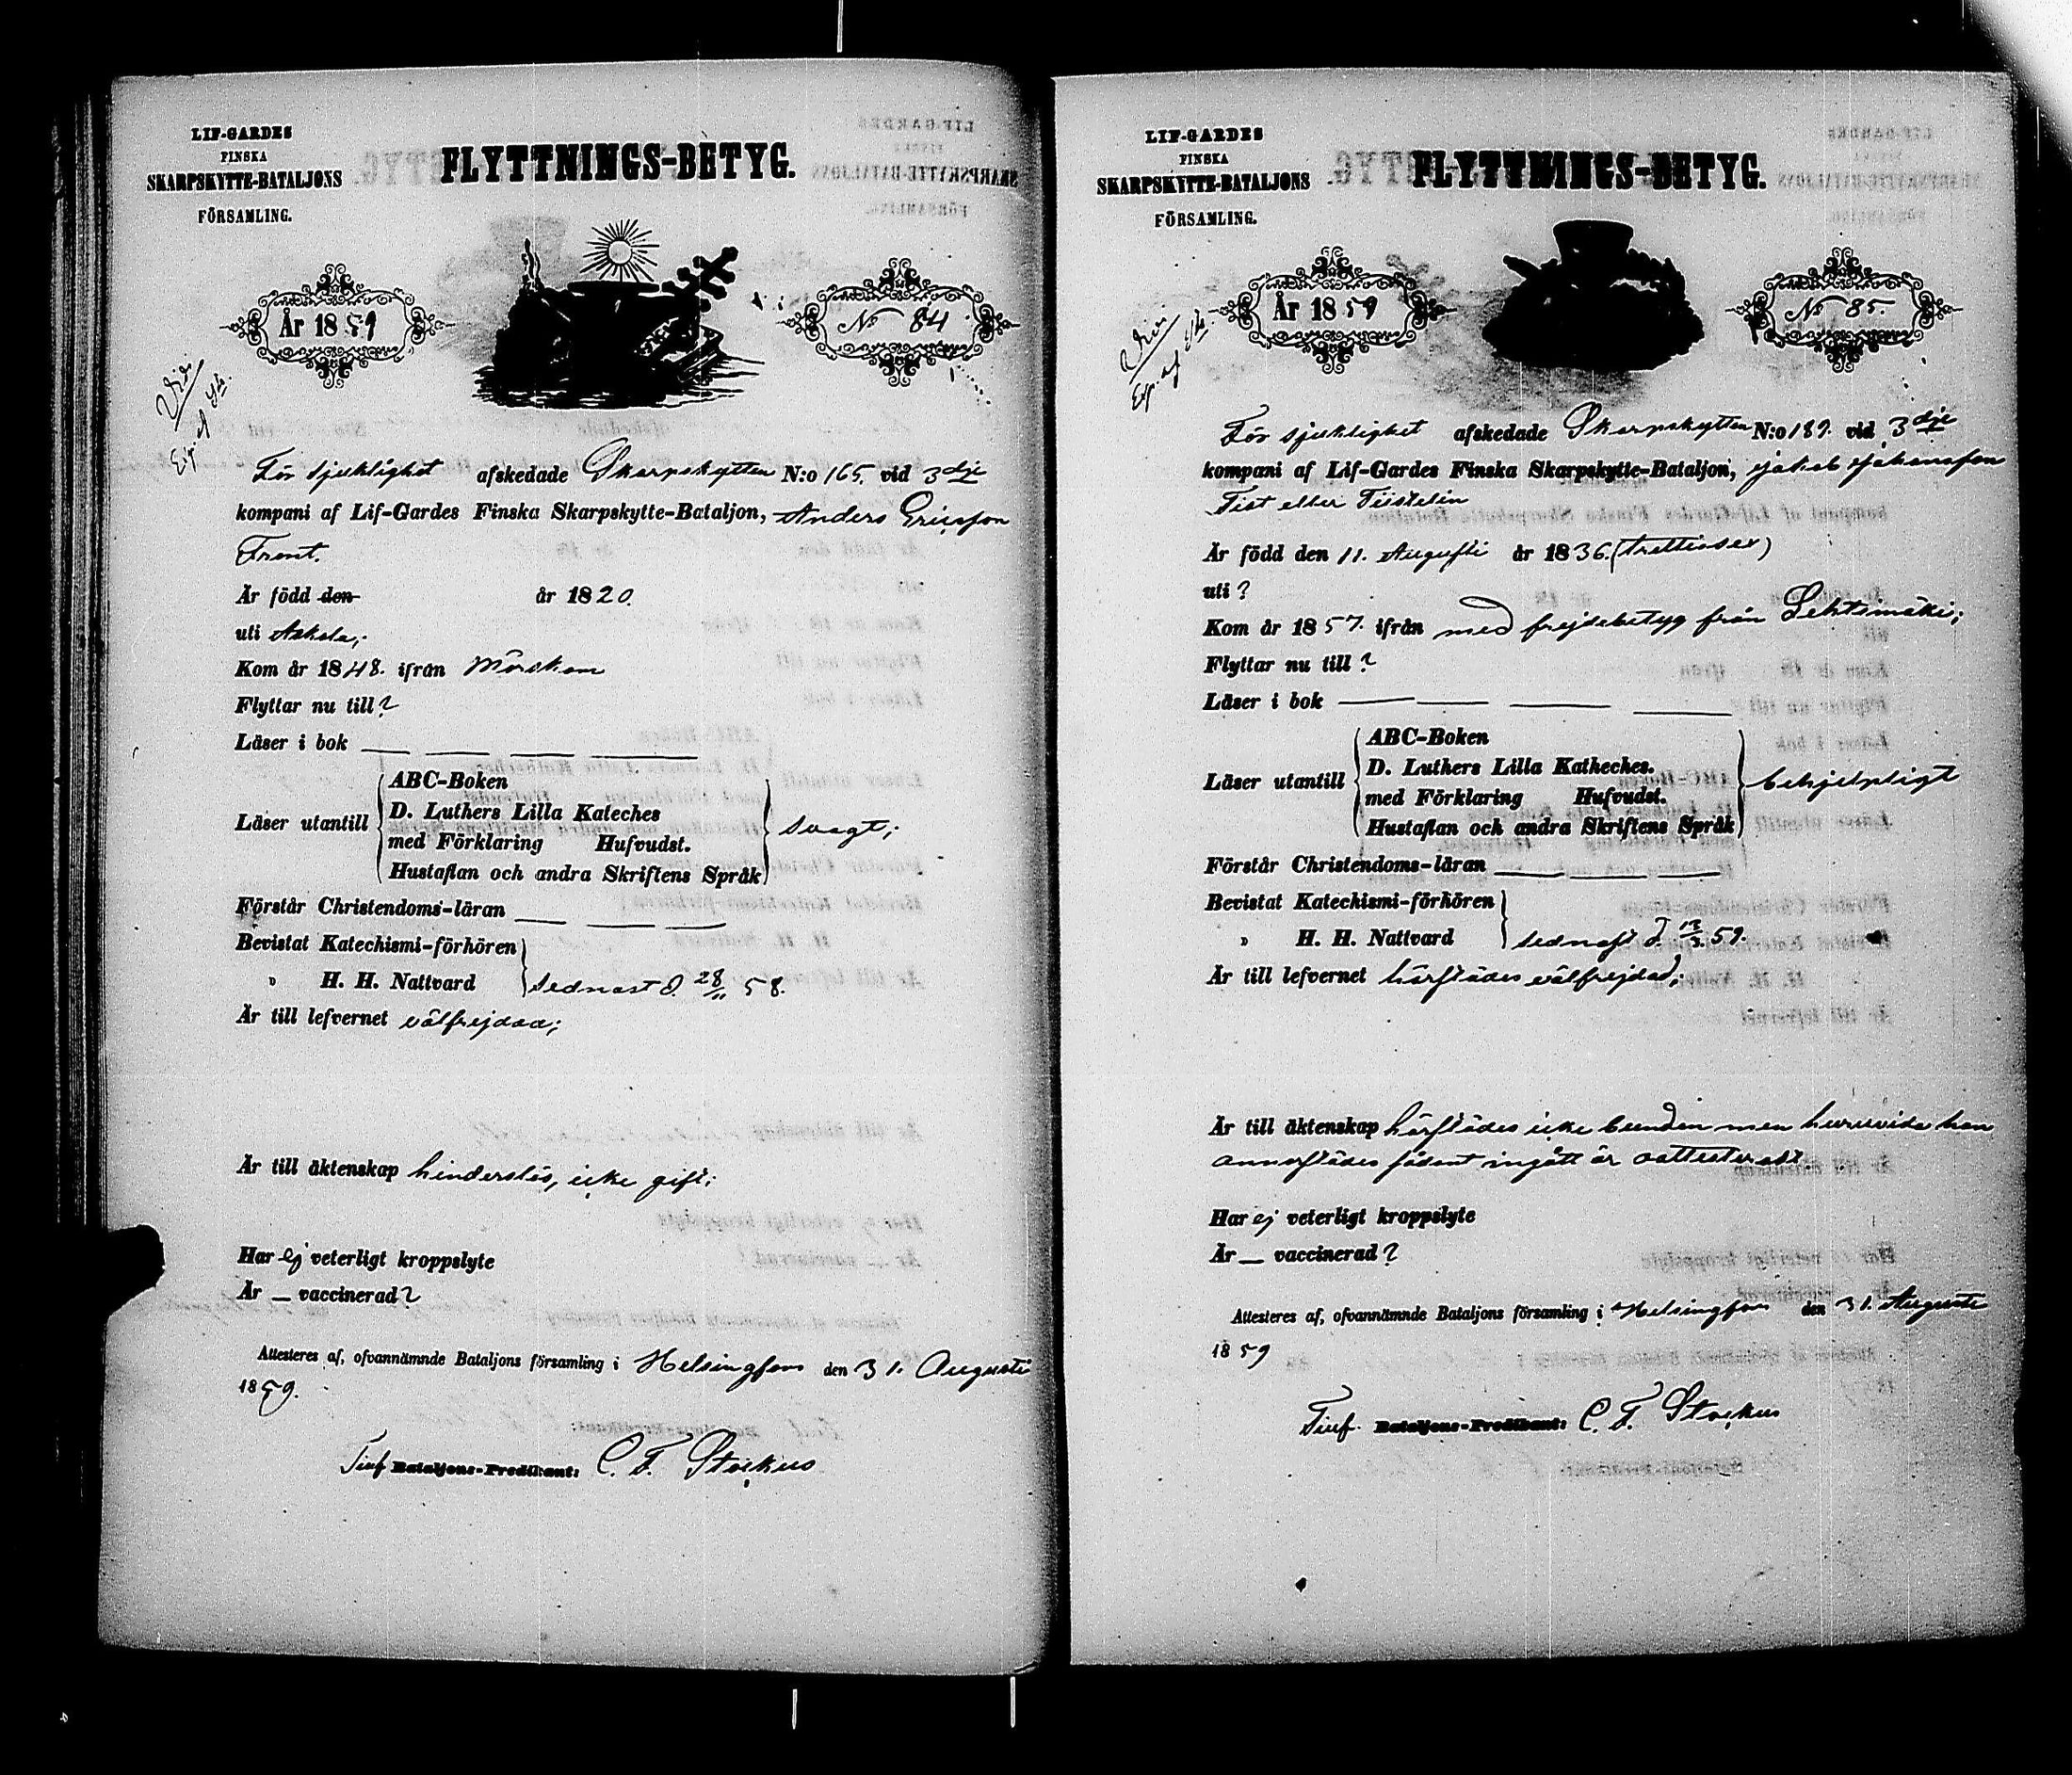 LIF-GARDES
FINSKA
SKARPSKYTTE-BATALJONS
FÖRSAMLING.
FLYTTNINGS-BETYG.
År 1859
No 84
För sjuklighet afskedade Skarpskytten N:o 165. vid 3dje
kompani af Lif-Gardes Finska Skarpskytte-Bataljon, Anders Ericsson
Front.
Är född den år 1820.
uti Askola;
Kom år 1848. ifrån Mörskom
Flyttar nu till?
Läser i bok
Läser utantill
ABC-Boken
D. Luthers Lilla Kateches
med Förklaring Hufvudst.
Hustaflan och andra Skriftens Språk
svagt;
Förstår Christendoms-läran
Bevistat Katechismi-förhören
" H. H. Nattvard
sednast d. 28/11 58.
Är till lefvernet välfrejdad;
Är till äktenskap hinderslös, icke gift;
Har ej veterligt kroppslyte
Är — vaccinerad?
Attesteres af, ofvannämnde Bataljons församling i Helsingfors den 31. Augusti
1859.
Bataljons-Predikant: C. F. Stockus
LIF-GARDES
FINSKA
SKARPSKYTTE-BATALJONS
FÖRSAMLING.
FLYTTNINGS-BETYG.
År 1859
No 85.
För sjuklighet afskedade Skarpskytten N:o 189. vid 3dje
kompani af Lif-Gardes Finska Skarpskytte-Bataljon, Jakob Johansson
Tist eller Tiistelin
Är född den 11. Augusti år 1836. (trettiosex)
uti?
Kom år 1857. ifrån med frejdebetyg från Lehtimäki;
Flyttar nu till?
Läser i bok
Läser utantill
ABC-Boken
D. Luthers Lilla Katheches.
med Förklaring Hufvudst.
Hustaflan och andra Skriftens Språk
behjelpligt
Förstår Christendoms-läran
Bevistat Katechismi-förhören
" H. H. Nattvard
sednast d. 59.
Är till lefvernet härstädes välfrejdad;
Är till äktenskap härstädes icke bunden men huruvida han
annorstädes sådant ingått är oattesteradt
Har ej veterligt kroppslyte
Är — vaccinerad?
Attesteres af, ofvannämnde Bataljons församling i Helsingfors den 31. Augusti
1859
Bataljons-Predikant: C. F. Stockus